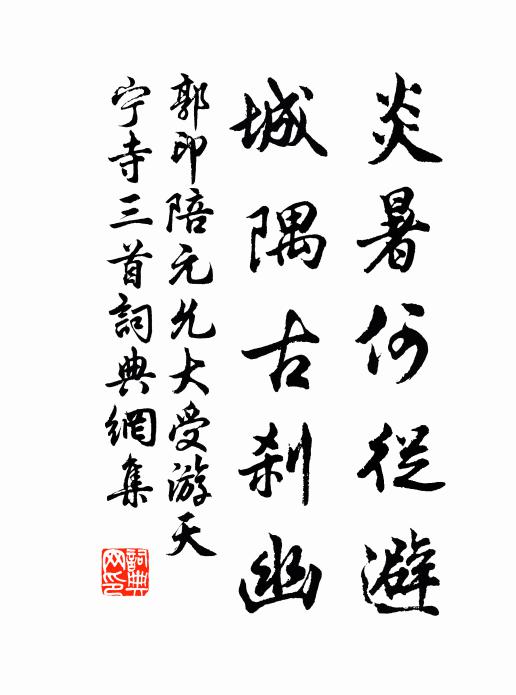 炎暑何從避
城隅古刹幽
郭印陪元允大受游天
宁寺三首詞典網集
詞典網印